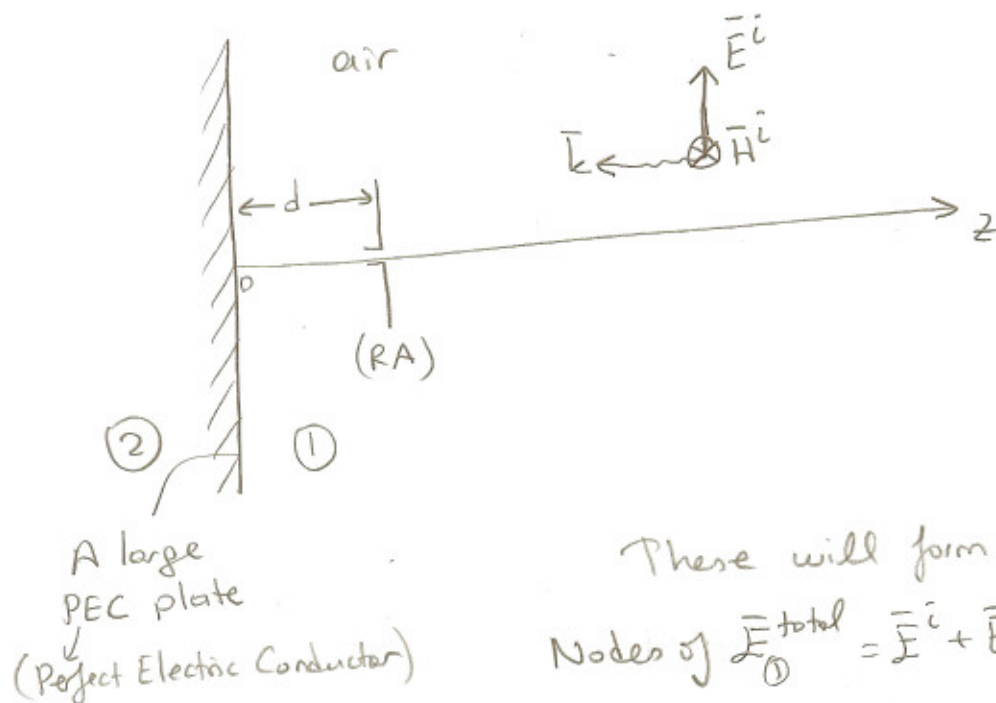 air
Ēⁱ
k̄
H̄ⁱ
d
z
0
(RA)
②
①
A large
PEC plate
(Perfect Electric Conductor)
These will form
Nodes of Ē①^total = Ēⁱ + Ē